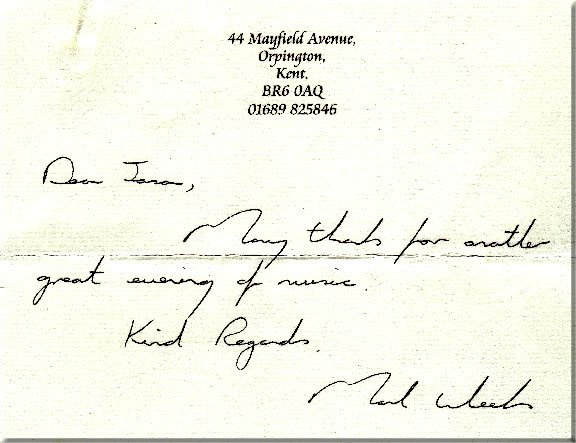 44 Mayfield Avenue,
Orpington,
Kent.
BR6 0AQ
01689 825846
Dear Jason,
Many thanks for another
great evening of music.
Kind Regards.
Mark Weeks